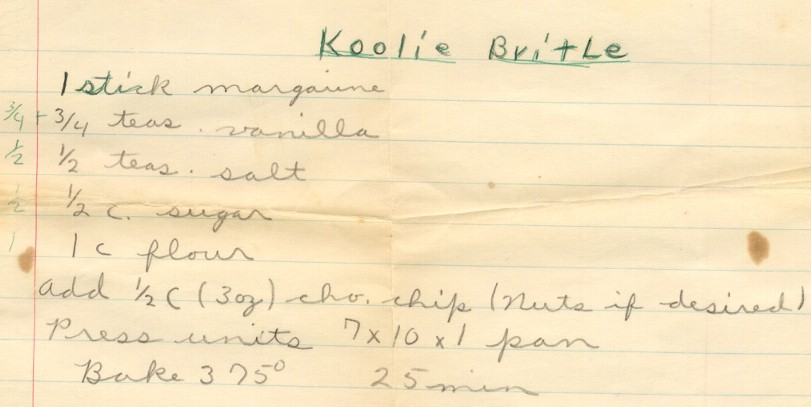 Koolie Britle
1 stick margarine
3/4 + 3/4 teas. vanilla
1/2 1/2 teas. salt
1/2 1/2 c. sugar
1 1 c flour
add 1/2 c (3oz) cho. chip (Nuts if desired)
Press units 7x10x1 pan
Bake 375° 25 min